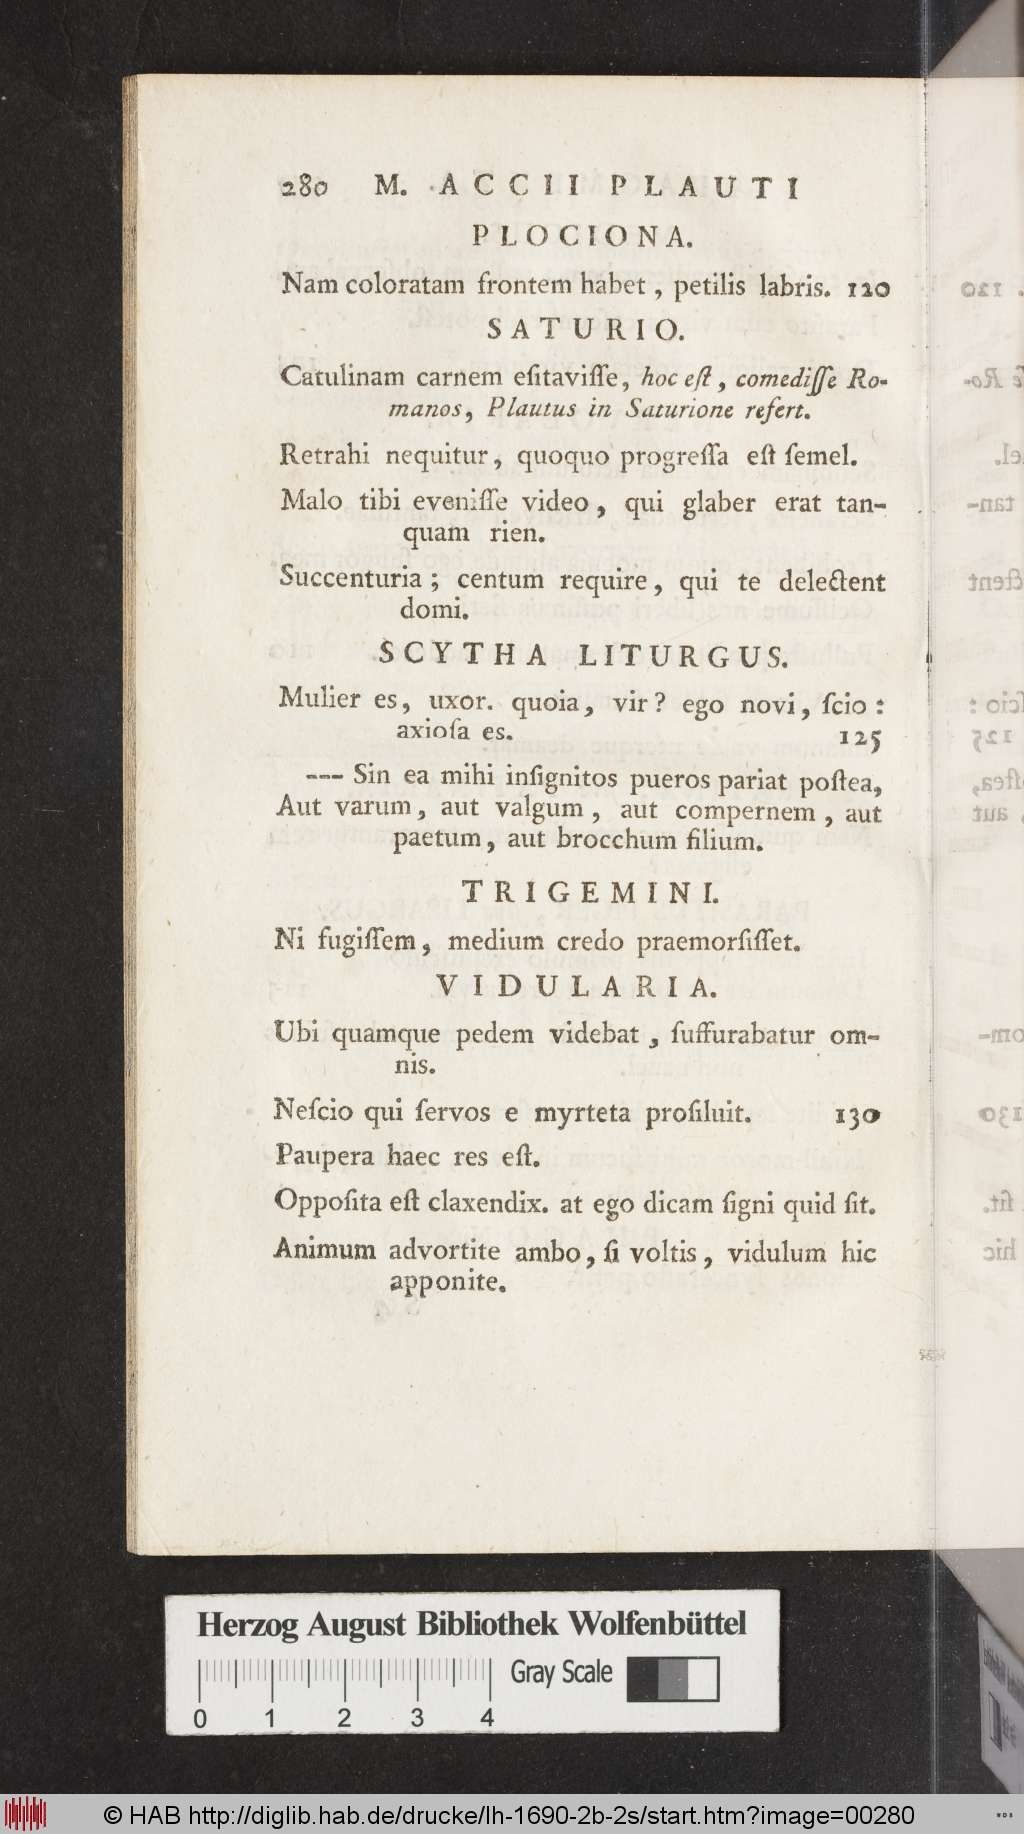 280 M. ACCII PLAUTI
PLOCIONA.
Nam coloratam frontem habet, petilis labris. 120
SATURIO.
Catulinam carnem eſitaviſſe, hoc eſt, comediſſe Ro-
manos, Plautus in Saturione refert.
Retrahi nequitur, quoquo progreſſa eſt ſemel.
Malo tibi eveniſſe video, qui glaber erat tan-
quam rien.
Succenturia; centum require, qui te delectent
domi.
SCYTHA LITURGUS.
Mulier es, uxor. quoia, vir? ego novi, ſcio:
axioſa es. 125
--- Sin ea mihi inſignitos pueros pariat poſtea,
Aut varum, aut valgum, aut compernem, aut
paetum, aut brocchum filium.
TRIGEMINI.
Ni fugiſſem, medium credo praemorſiſſet.
VIDULARIA.
Ubi quamque pedem videbat, ſuffurabatur om-
nis.
Neſcio qui ſervos e myrteta proſiluit. 130
Paupera haec res eſt.
Oppoſita eſt claxendix. at ego dicam ſigni quid ſit.
Animum advortite ambo, ſi voltis, vidulum hic
apponite.
Herzog August Bibliothek Wolfenbüttel
Gray Scale
0 1 2 3 4
© HAB http://diglib.hab.de/drucke/lh-1690-2b-2s/start.htm?image=00280